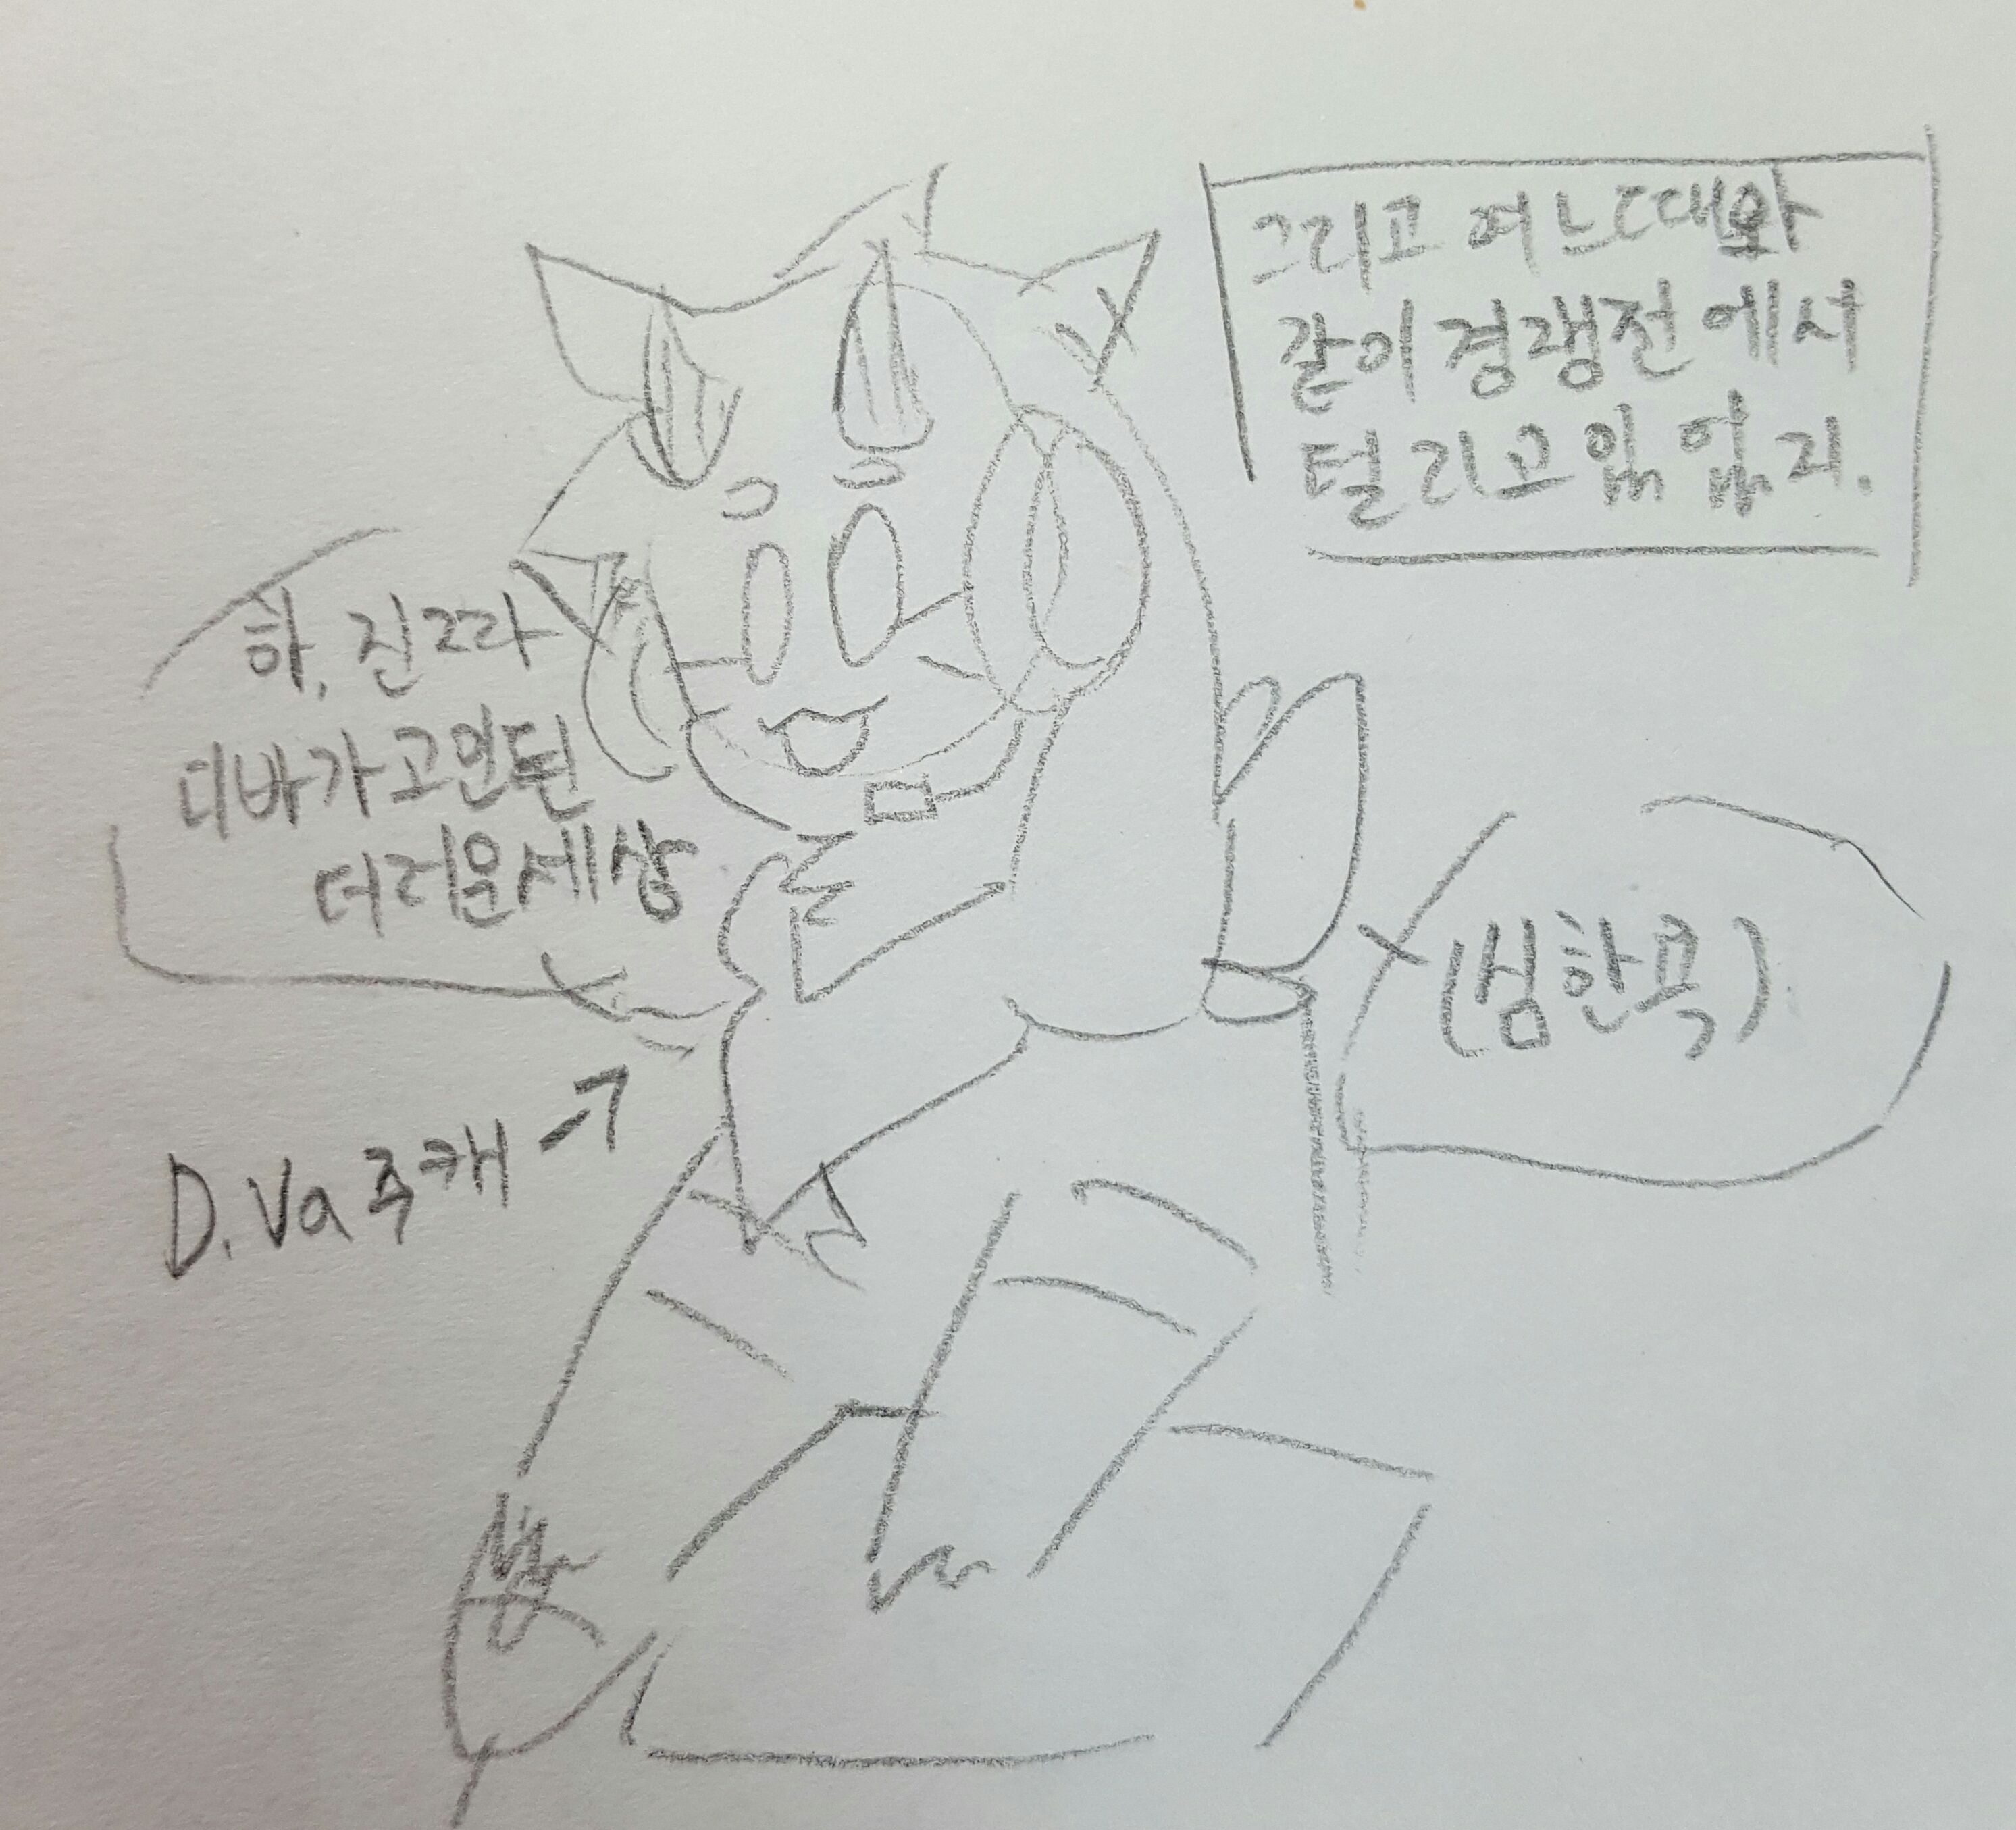 그리고 여느때와
같이 경쟁전에서
털리고 있었지.
하, 진짜
디바가 고인된
더러운세상
(심한욕)
D.Va 주캐 →